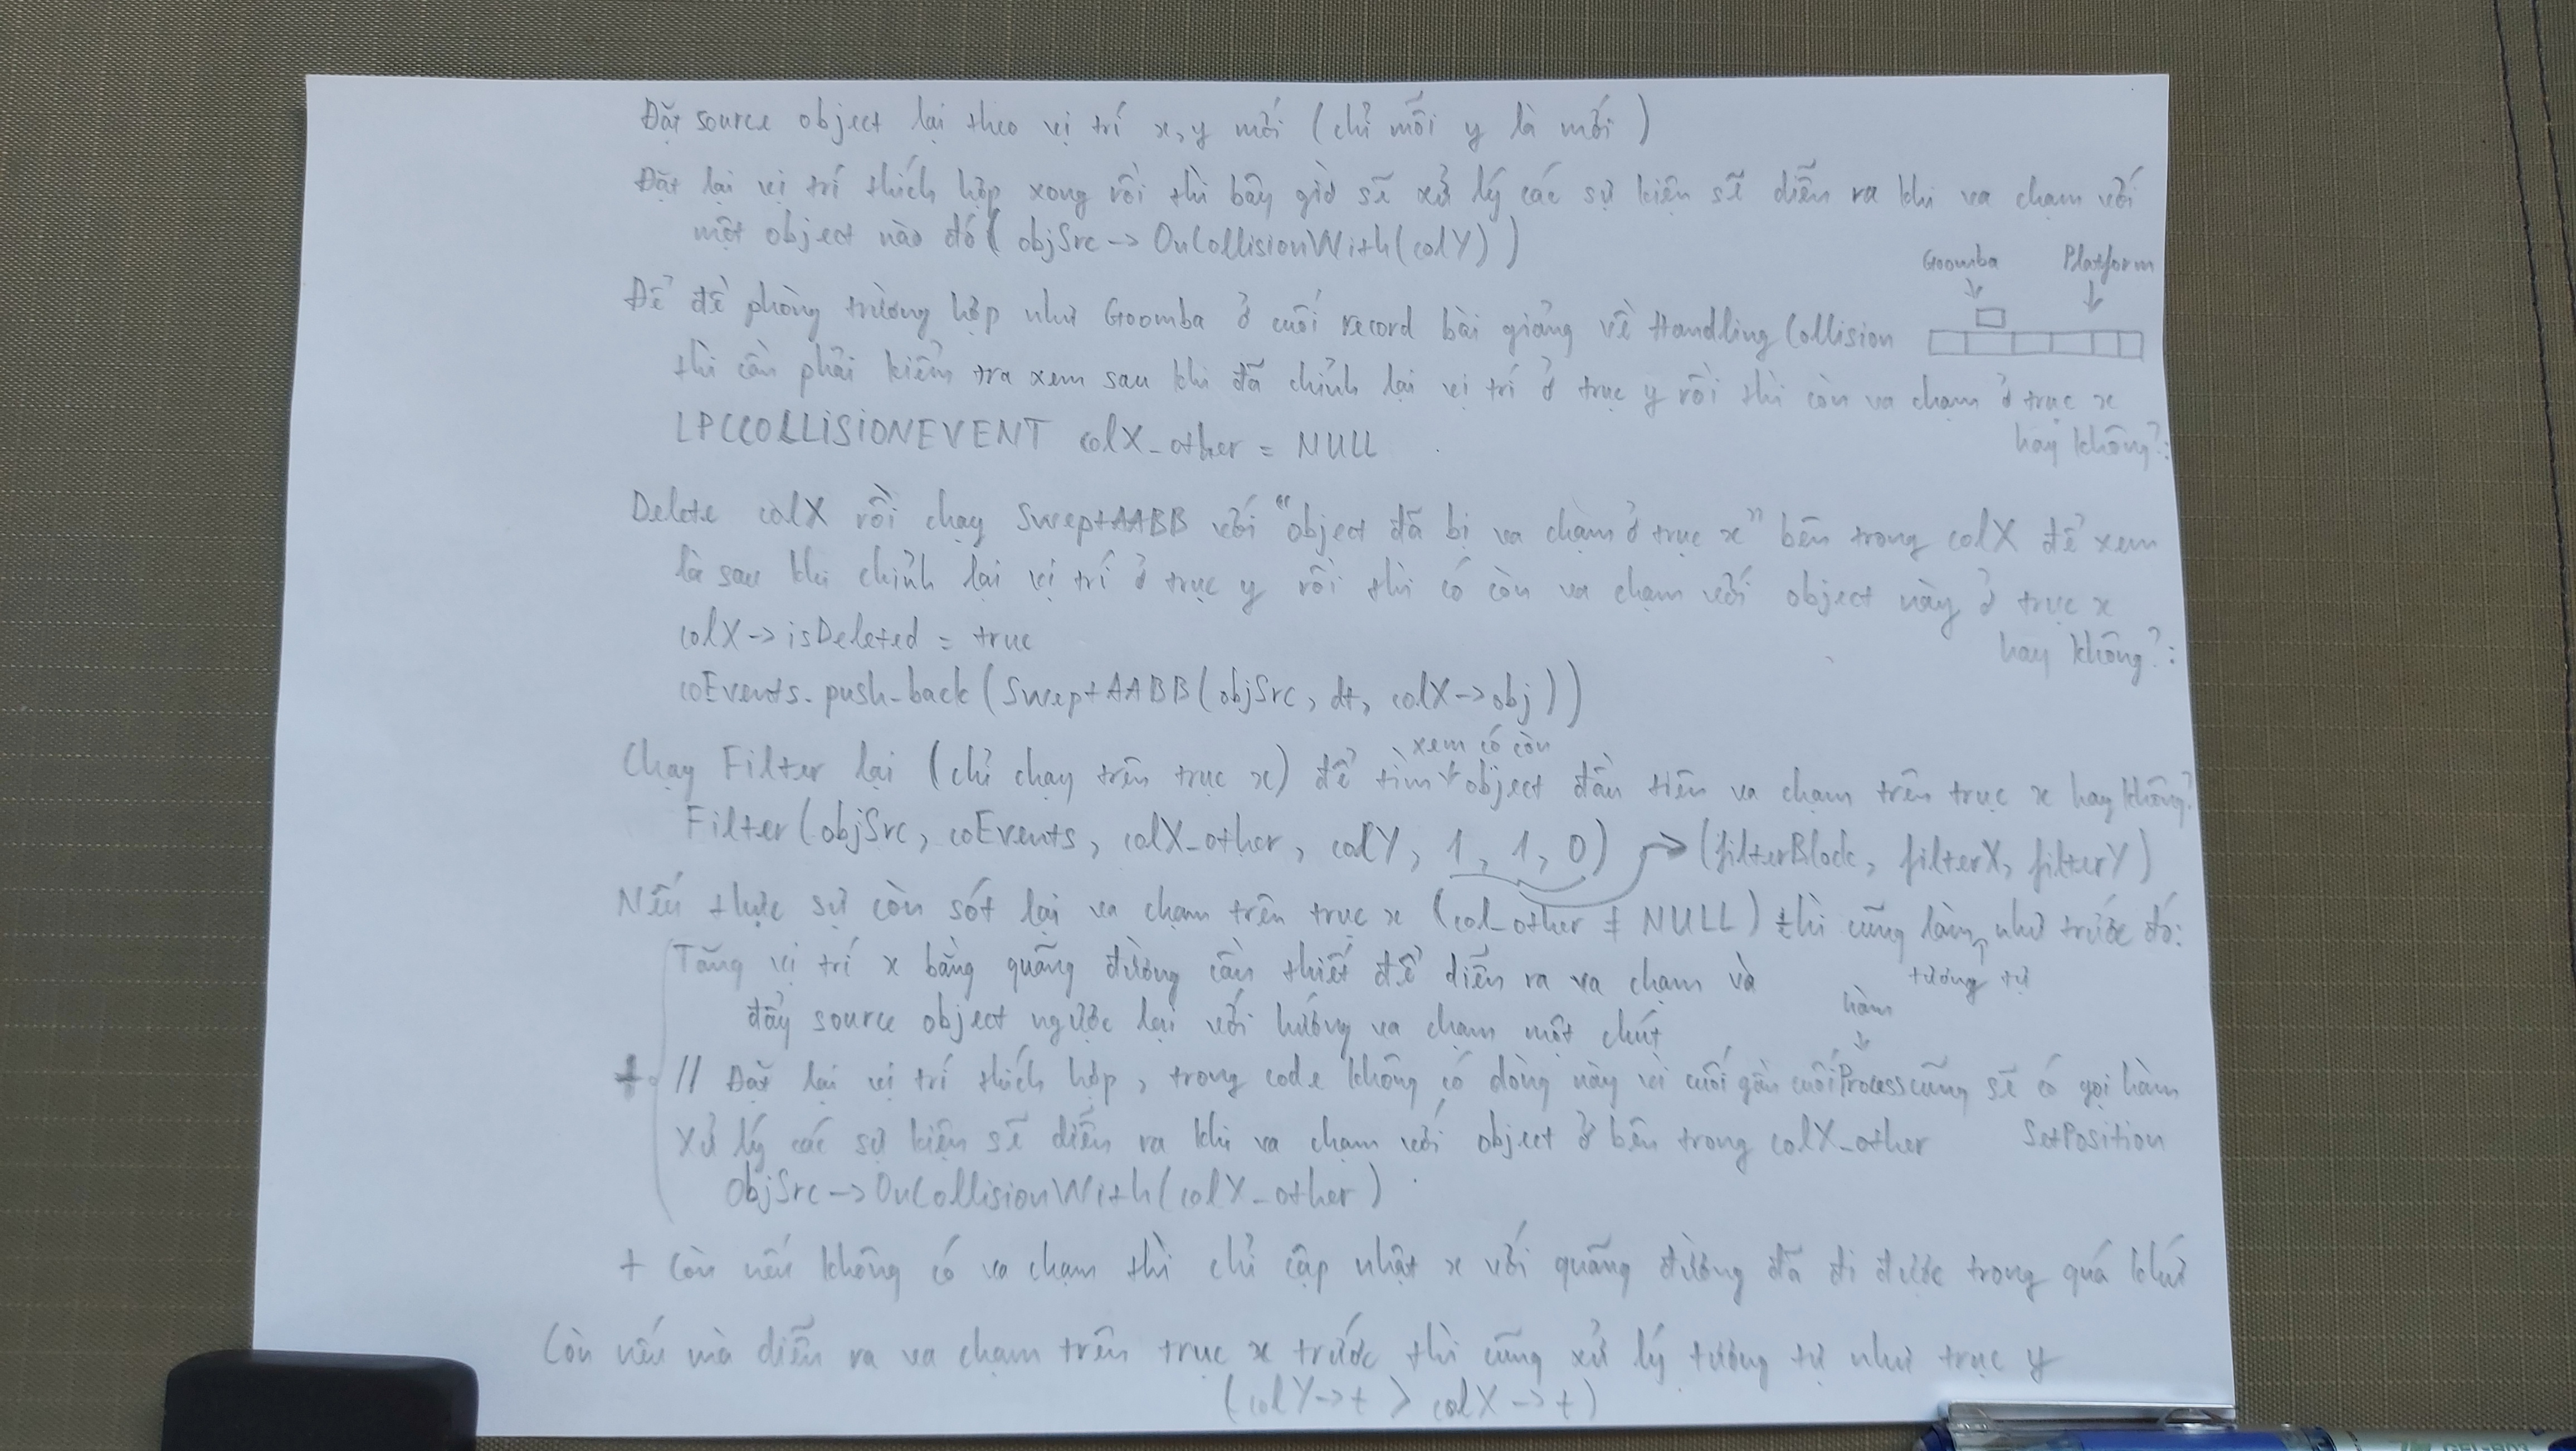 Đặt source object lại theo vị trí x, y mới (chỉ mỗi y là mới)
Đặt lại vị trí thích hợp xong rồi thì bây giờ sẽ xử lý các sự kiện sẽ diễn ra khi va chạm với
một object nào đó (objSrc -> OnCollisionWith(colY))
Goomba Platform
Để đề phòng trường hợp như Goomba ở cuối record bài giảng về Handling Collision
thì cần phải kiểm tra xem sau khi đã chỉnh lại vị trí ở trục y rồi thì còn va chạm ở trục x
hay không?:
LPCCOLLISIONEVENT colX_other = NULL
Delete colX rồi chạy SweptAABB với "object đã bị va chạm ở trục x" bên trong colX để xem
là sau khi chỉnh lại vị trí ở trục y rồi thì có còn va chạm với object này ở trục x
hay không?:
colX -> isDeleted = true
coEvents.push_back(SweptAABB(objSrc, dt, colX->obj))
xem có còn
Chạy Filter lại (chỉ chạy trên trục x) để tìm object đầu tiên va chạm trên trục x hay không?
Filter(objSrc, coEvents, colX_other, colY, 1, 1, 0) -> (filterBlock, filterX, filterY)
Nếu thực sự còn sót lại va chạm trên trục x (col_other ≠ NULL) thì cũng làm như trước đó:
tương tự
Tăng vị trí x bằng quãng đường cần thiết để diễn ra va chạm và
đẩy source object ngược lại với hướng va chạm một chút
hàm
+ // Đặt lại vị trí thích hợp, trong code không có dòng này vì cuối gần cuối Process cũng sẽ có gọi hàm
SetPosition
Xử lý các sự kiện sẽ diễn ra khi va chạm với object ở bên trong colX_other
objSrc -> OnCollisionWith(colX_other)
+ Còn nếu không có va chạm thì chỉ cập nhật x với quãng đường đã đi được trong quá khứ
Còn nếu mà diễn ra va chạm trên trục x trước thì cũng xử lý tương tự như trục y
(colY->t > colX->t)